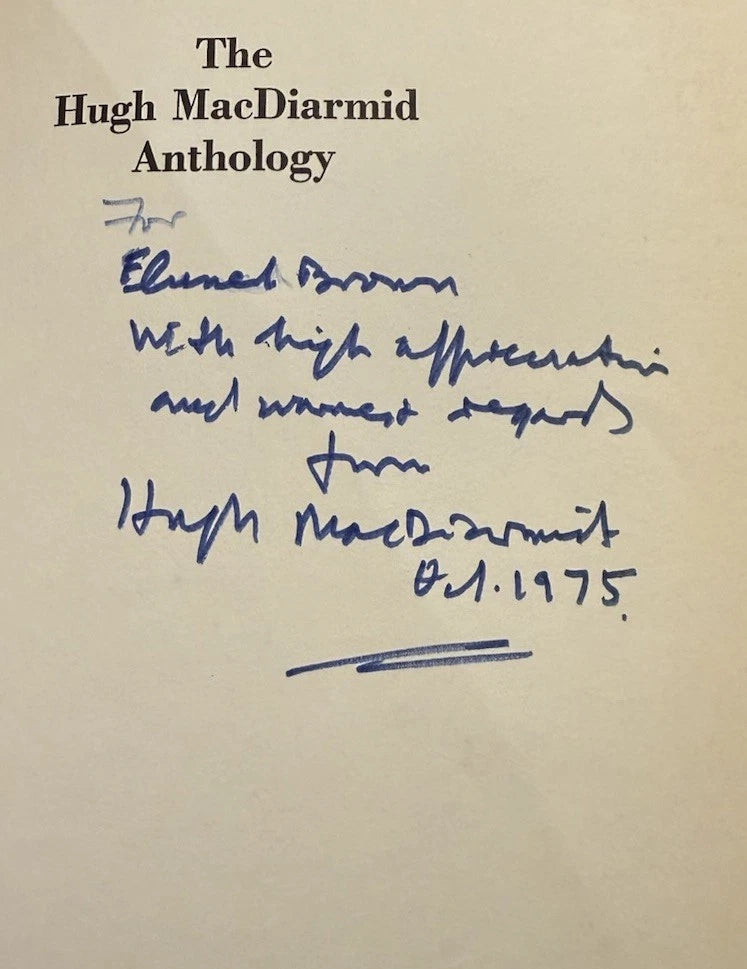 The
Hugh MacDiarmid
Anthology
For
Eluned Brown
With high appreciation
and warmest regards
from
Hugh MacDiarmid
Oct. 1975.